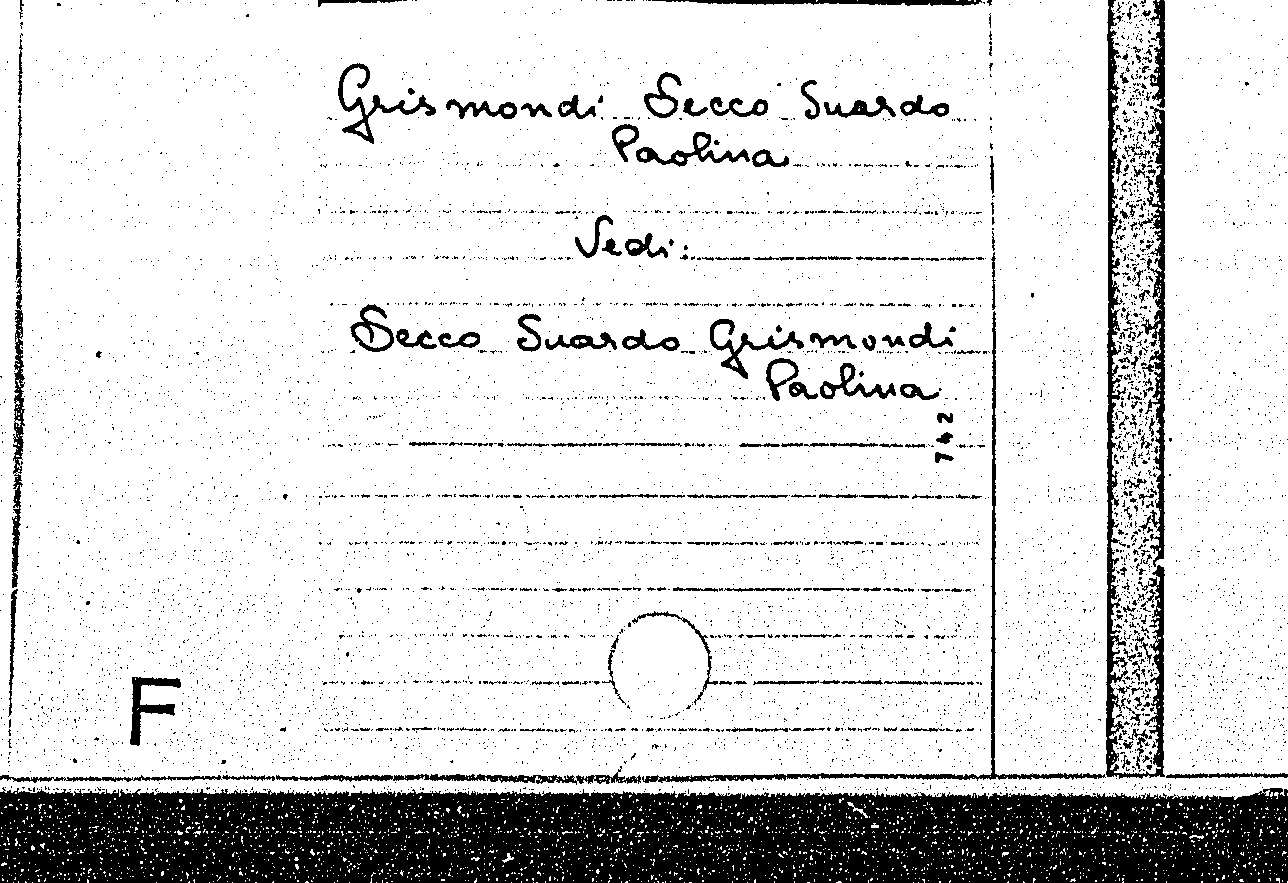 Grismondi Secco Suardo
Paolina
Vedi:
Secco Suardo Grismondi
Paolina
742
F